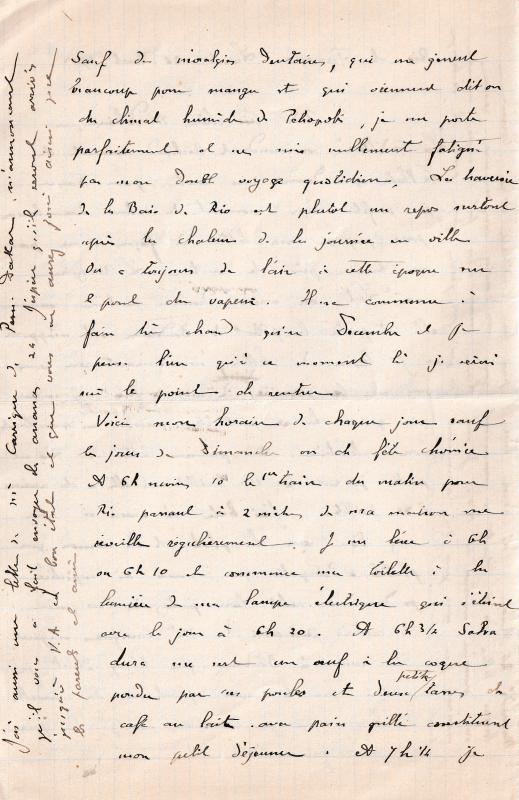 Sauf des névralgies dentaires, qui me gênent
beaucoup pour manger et qui viennent dit on
du climat humide de Petropolis, je me porte
parfaitement et ne suis nullement fatigué
par mon double voyage quotidien. La traversée
de la Baie de Rio est plutôt un repos surtout
après la chaleur de la journée en ville
On a toujours de l'air à cette époque sur
le pont du vapeur. Il ne commence à
faire très chaud qu'en Decembre et je
pense bien qu'à ce moment là je serai
sur le point de rentrer
Voici mon horaire de chaque jour sauf
les jours de Dimanche ou de fête chômée
A 6h moins 10 le 1er train du matin pour
Rio passant à 2 mètres de ma maison me
réveille régulièrement. Je me lève à 6h
ou 6h10 et commence ma toilette à la
lumière de ma lampe électrique qui s'éteint
avec le jour à 6h 20. A 6h 3/4 Salva
dora me sert un œuf à la coque
pondu par ses poules et deux petites tasses de
café au lait avec pain grillé constituent
mon petit déjeuner. A 7h 1/4 je
J'ai aussi une lettre de Mr Carrigue de Dakar m'annonçant
qu'il vous a fait envoyer des ananas J'espère qu'ils seront arrivés
jusqu'à V.A. en bon état et que vous en aurez joui ainsi que
les parents et amis